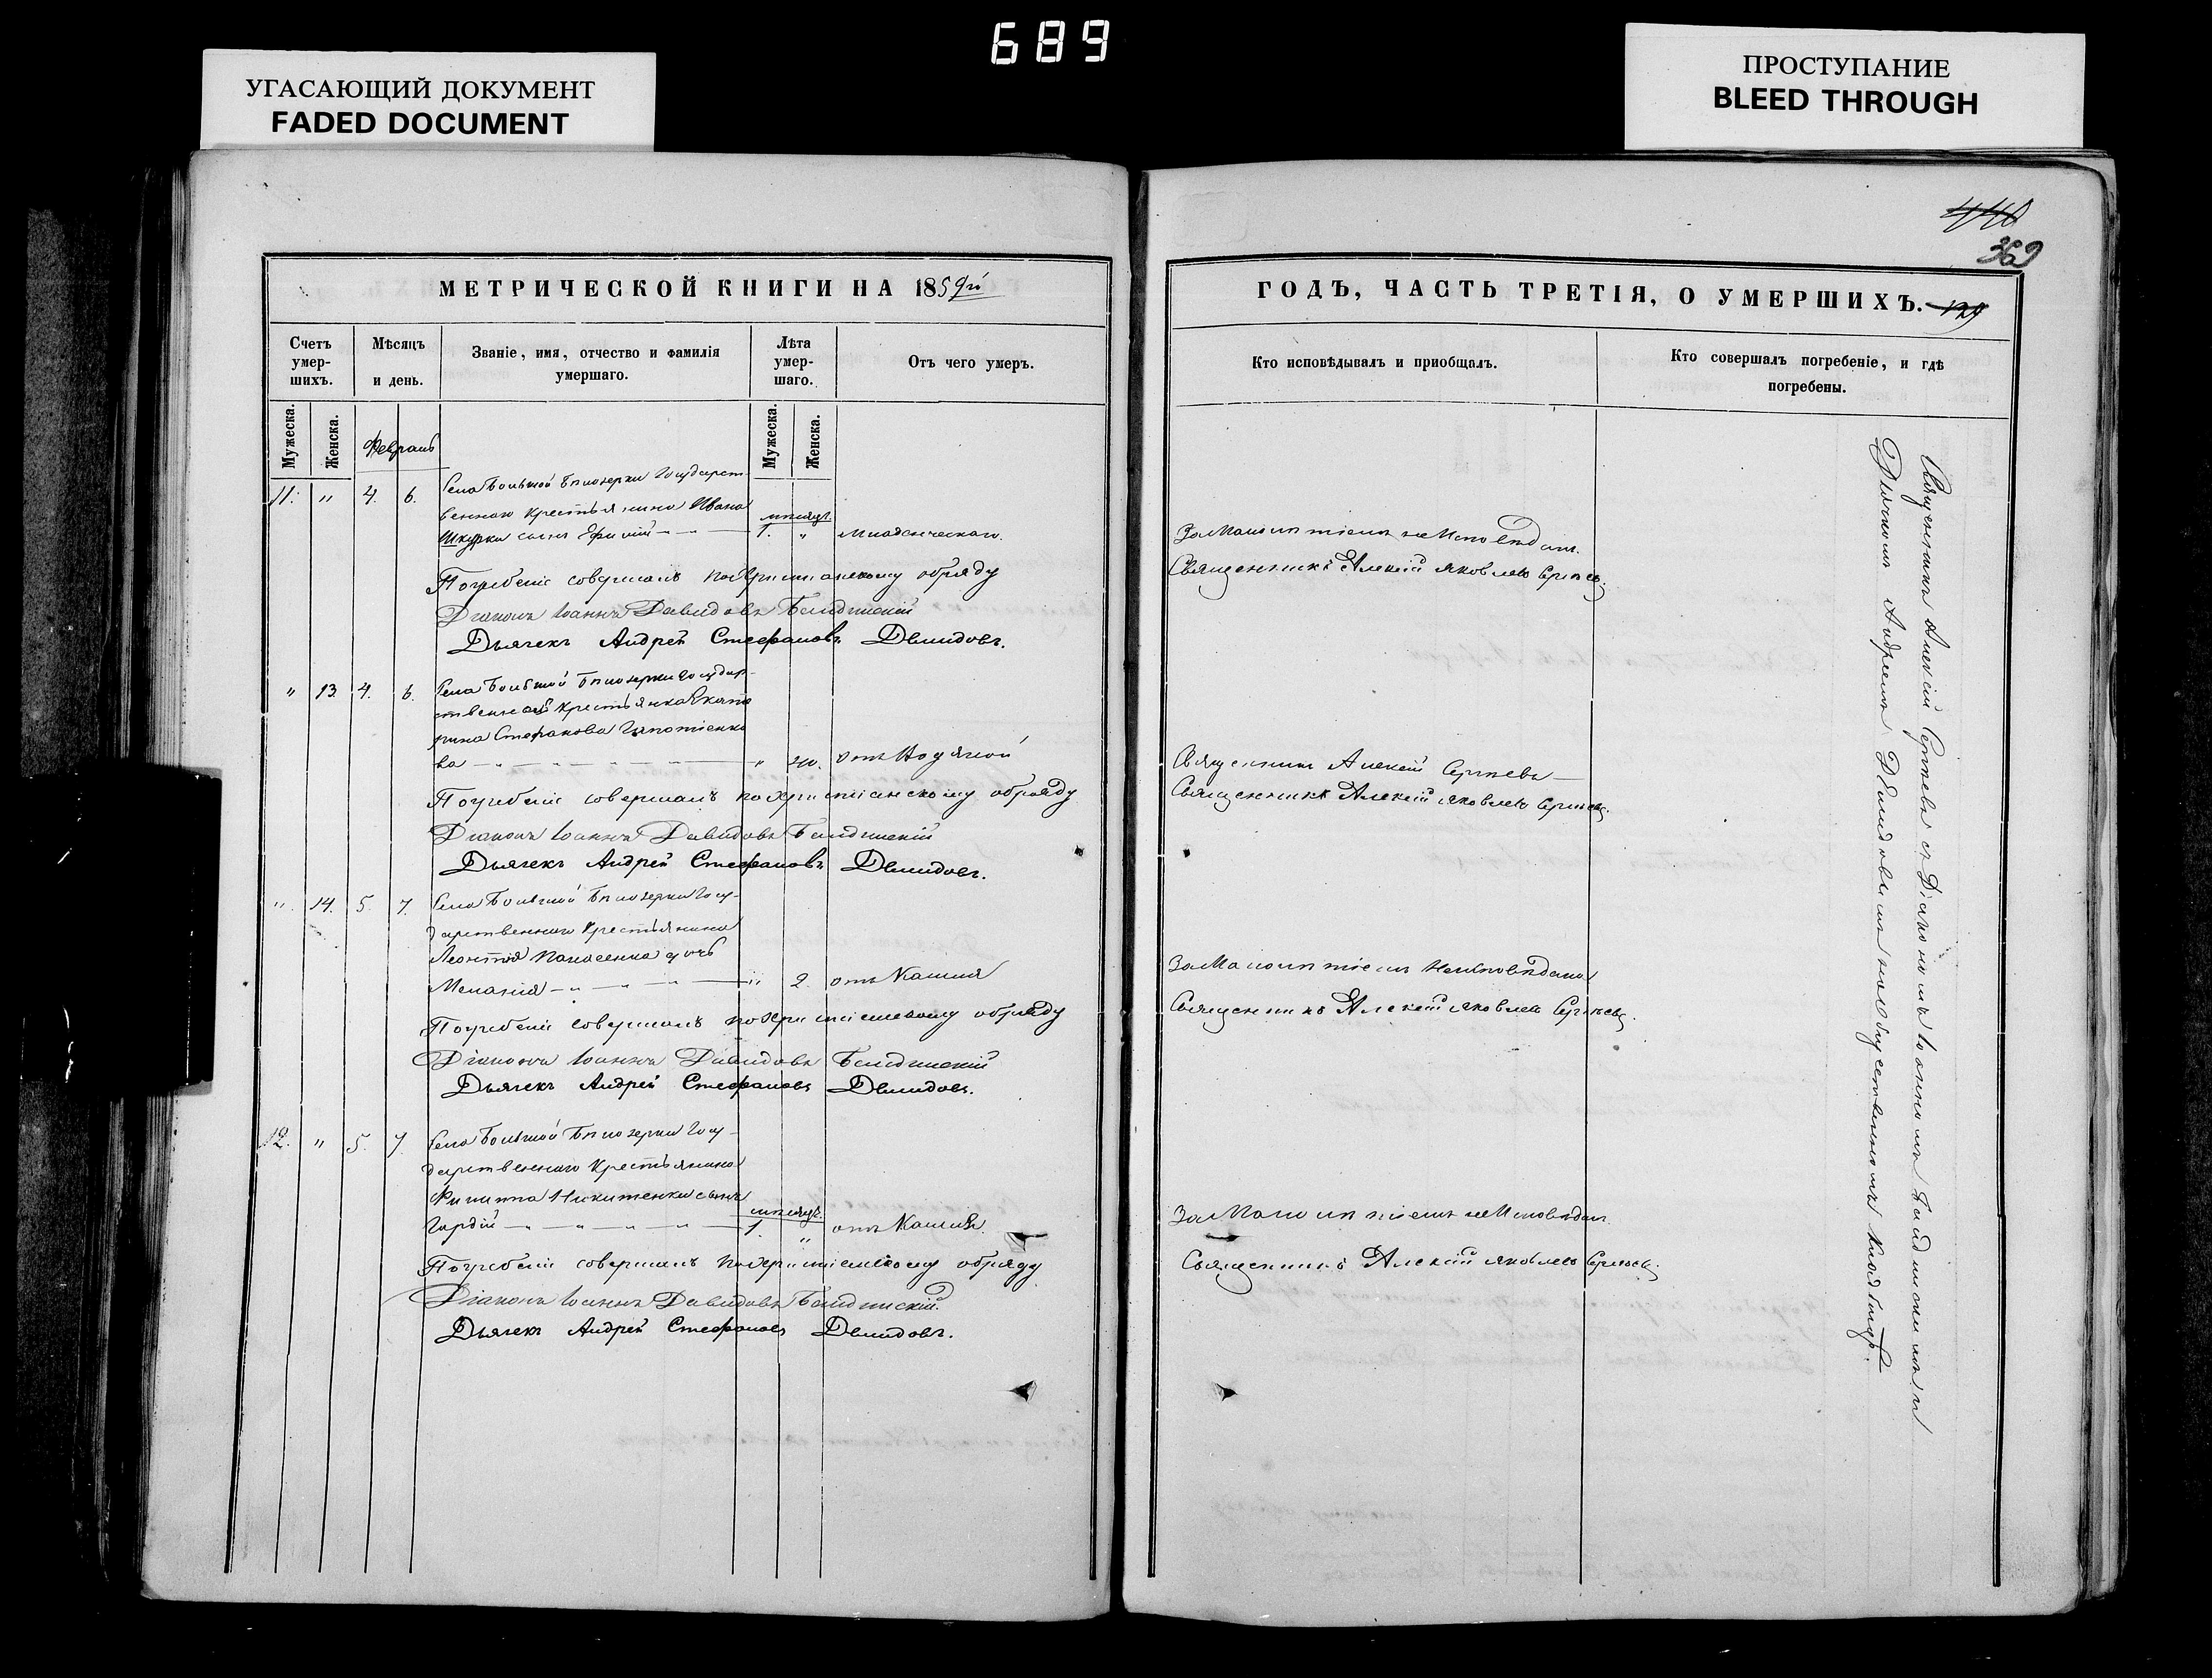 689
УГАСАЮЩИЙ ДОКУМЕНТ
FADED DOCUMENT
ПРОСТУПАНИЕ
BLEED THROUGH
440
369
МЕТРИЧЕСКОЙ КНИГИ НА 1859й
Счетъ умер-шихъ.
Мѣсяцъ и день.
Званіе, имя, отчество и фамилія умершаго.
Лѣта умер-шаго.
Отъ чего умеръ.
Мужеска.
Женска.
Февраль
Мужеска.
Женска.
11. " 4. 6. Села Большой Бѣлозерки Государст-
веннаго крестьянина Ивана
мѣсяцъ
Шкурки сынъ Ефимій 1. " младенческаго.
Погребеніе совершалъ по христіанскому обряду
Діаконъ Іоаннъ Давидовъ
Дьячекъ Андрей Стефановъ Демидовъ.
" 13. 4. 6. Села Большой Бѣлозерки Государ-
ственная крестьянка Екате
рина Стефанова
ва " 40. отъ Водяной
Погребеніе совершалъ по христіанскому обряду
Діаконъ Іоаннъ Давидовъ
Дьячекъ Андрей Стефановъ Демидовъ.
" 14. 5. 7. Села Большой Бѣлозерки Госу-
дарственнаго Крестьянина
Леонтія Панасенка дочь
Меланія " 2. отъ Кашля
Погребеніе совершалъ по христіанскому обряду
Діаконъ Іоаннъ Давидовъ
Дьячекъ Андрей Стефановъ Демидовъ.
12. " 5. 7. Села Большой Бѣлозерки Госу-
дарственнаго Крестьянина
Филиппа Никитенки сынъ
мѣсяцъ.
Гордій 1. " отъ Кашля.
Погребеніе совершалъ по христіанскому обряду
Діаконъ Іоаннъ Давидовъ
Дьячекъ Андрей Стефановъ Демидовъ.
ГОДЪ, ЧАСТЬ ТРЕТІЯ, О УМЕРШИХЪ. 129
Кто исповѣдывалъ и пріобщалъ.
Кто совершалъ погребеніе, и гдѣ погребены.
За Малолѣтіемъ не Исповѣданъ.
Священникъ Алексій Яковлевъ Сергѣевъ.
Священникъ Алексій Сергѣевъ
Священникъ Алексій Яковлевъ Сергѣевъ.
За Малолѣтіемъ не Исповѣдана
Священникъ Алексій Яковлевъ Сергѣевъ.
За Малолѣтіемъ не Исповѣданъ
Священникъ Алексій Яковлевъ Сергѣевъ.
Священникъ Алексій Сергѣевъ съ Діакономъ Іоанномъ и
Дьячкомъ Андреемъ Демидовымъ на общественномъ кладбищѣ.